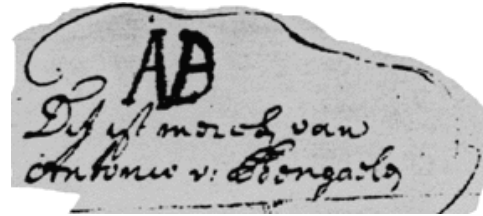 AB
Dit ist merck van
Antonio v: Bengaelen